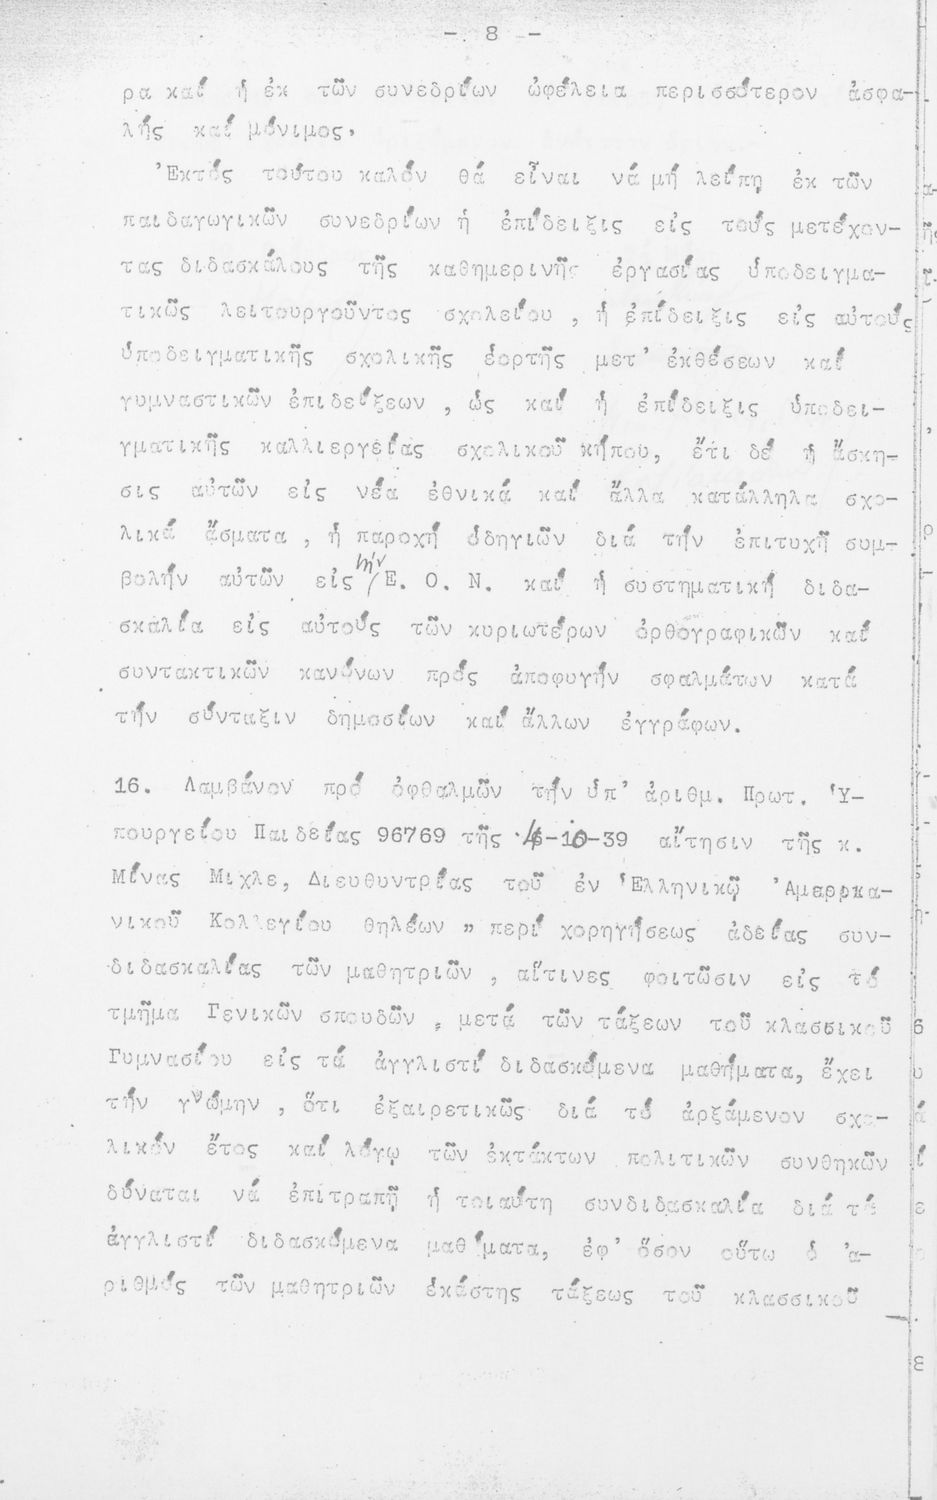 - 8 -
ρα καί ἡ ἐκ τῶν συνεδρίων ὠφέλεια περισσότερον ἀσφα-
λής καί μόνιμος.
Ἐκτός τούτου καλόν θά εἶναι νά μή λείπῃ ἐκ τῶν
παιδαγωγικῶν συνεδρίων ἡ ἐπίδειξις εἰς τούς μετέχον-
τας διδασκάλους τῆς καθημερινῆς ἐργασίας ὑποδειγμα-
τικῶς λειτουργοῦντος σχολείου , ἡ ἐπίδειξις εἰς αὐτούς
ὑποδειγματικῆς σχολικῆς ἑορτῆς μετ' ἐκθέσεων καί
γυμναστικῶν ἐπιδείξεων , ὡς καί ἡ ἐπίδειξις ὑποδει-
γματικῆς καλλιεργείας σχολικοῦ κήπου, ἔτι δέ ἡ ἄσκη-
σις αὐτῶν εἰς νέα ἐθνικά καί ἄλλα κατάλληλα σχο-
λικά ᾄσματα , ἡ παροχή ὁδηγιῶν διά τήν ἐπιτυχῆ συμ-
βολήν αὐτῶν εἰς τήν Ε. Ο. Ν. καί ἡ συστηματική διδα-
σκαλία εἰς αὐτούς τῶν κυριωτέρων ὀρθογραφικῶν καί
συντακτικῶν κανόνων πρός ἀποφυγήν σφαλμάτων κατά
τήν σύνταξιν δημοσίων καί ἄλλων ἐγγράφων.
16. Λαμβάνον πρό ὀφθαλμῶν τήν ὑπ' ἀριθμ. Πρωτ. Ὑ-
πουργείου Παιδείας 96769 τῆς -10-39 αἴτησιν τῆς κ.
Μίνας Μιχλε, Διευθυντρίας τοῦ ἐν Ἑλληνικῷ Ἀμερρικα-
νικοῦ Κολλεγίου θηλέων " περί χορηγήσεως ἀδείας συν-
διδασκαλίας τῶν μαθητριῶν , αἵτινες φοιτῶσιν εἰς τό
τμῆμα Γενικῶν σπουδῶν , μετά τῶν τάξεων τοῦ κλασσικοῦ
Γυμνασίου εἰς τά ἀγγλιστί διδασκόμενα μαθήματα, ἔχει
τήν γνώμην , ὅτι ἐξαιρετικῶς διά τό ἀρξάμενον σχο-
λικόν ἔτος καί λόγῳ τῶν ἐκτάκτων πολιτικῶν συνθηκῶν
δύναται νά ἐπιτραπῇ ἡ τοιαύτη συνδιδασκαλία διά τά
ἀγγλιστί διδασκόμενα μαθήματα, ἐφ' ὅσον οὕτω ὁ ἀ-
ριθμός τῶν μαθητριῶν ἑκάστης τάξεως τοῦ κλασσικοῦ